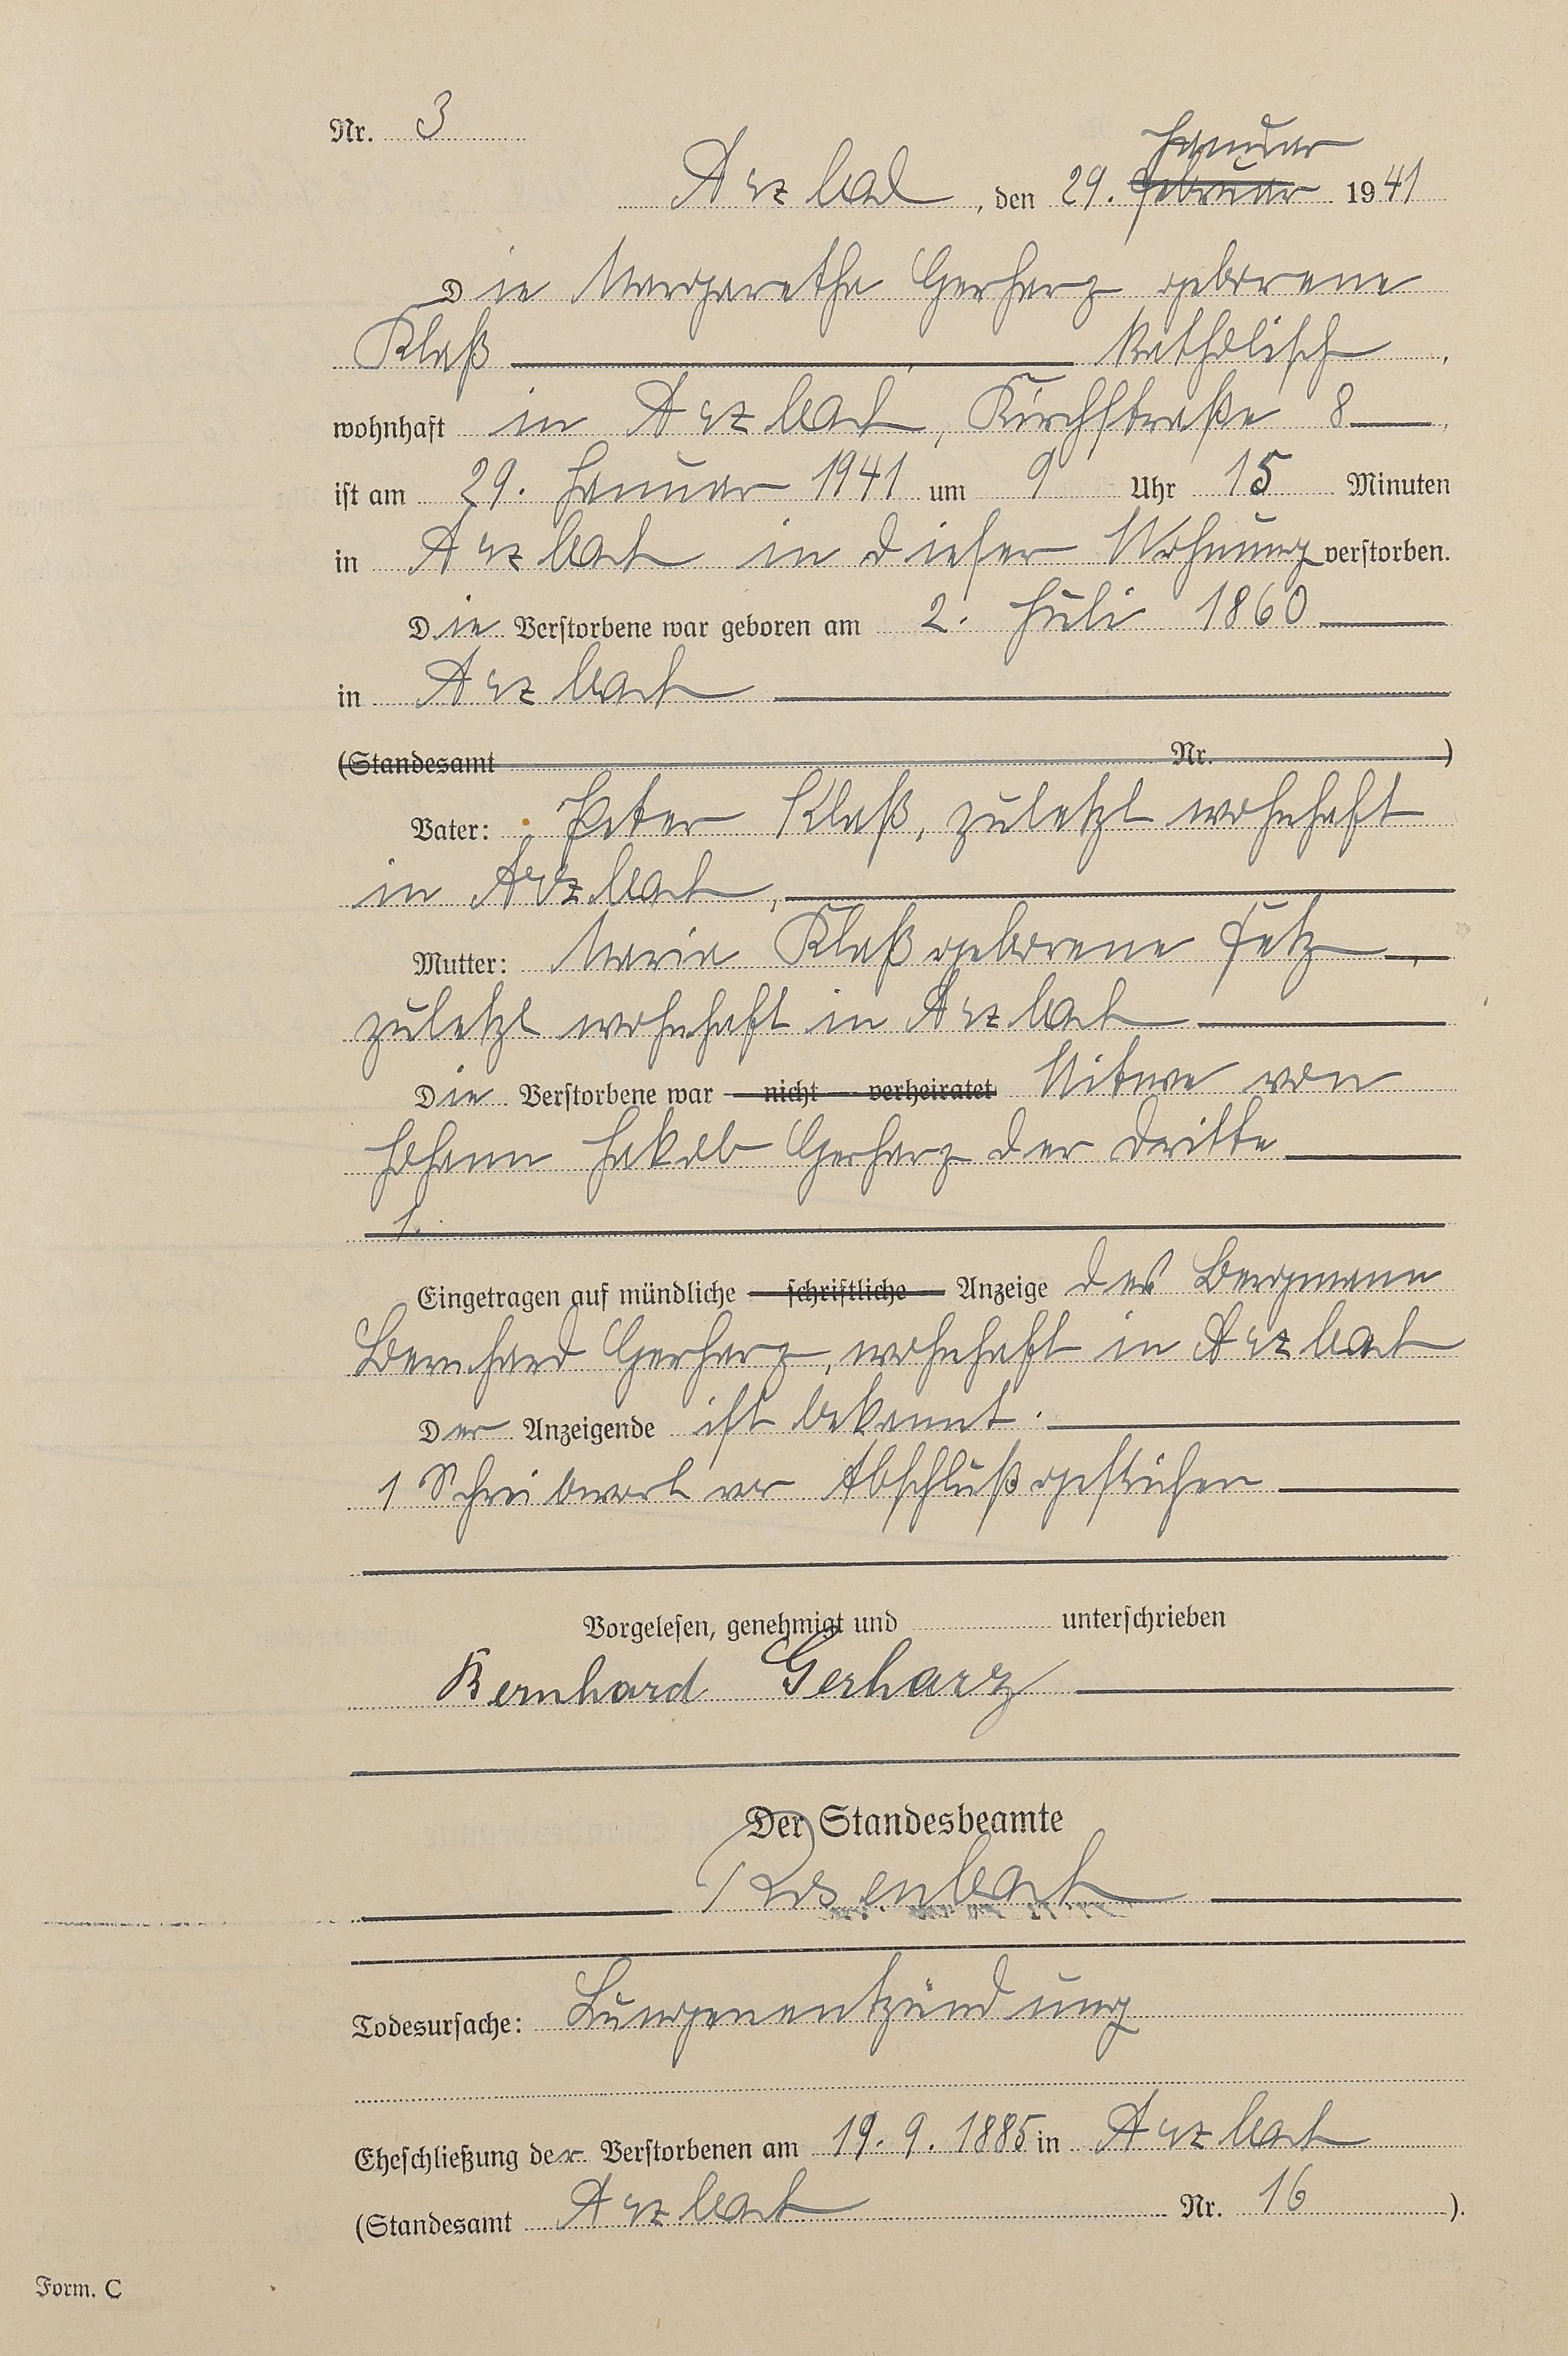 Nr. 3
Januar
Arzbach, den 29. Februar 1941
Die Margaretha Gerharz geborene
Klaß katholisch,
wohnhaft in Arzbach, Kirchstraße 8,
ist am 29. Januar 1941 um 9 Uhr 15 Minuten
in Arzbach in dieser Wohnung verstorben.
Die Verstorbene war geboren am 2. Juli 1860
in Arzbach
(Standesamt Nr. )
Vater: Peter Klaß, zuletzt wohnhaft
in Arzbach,
Mutter: Maria Klaß geborene,
zuletzt wohnhaft in Arzbach
Die Verstorbene war nicht verheiratet Witwe von
Johann Jakob Gerharz der Dritte
1.
Eingetragen auf mündliche schriftliche Anzeige des Bergmann
Bernhard Gerharz, wohnhaft in Arzbach
Der Anzeigende ist bekannt.
1 Schreibwort vor Abschluß gestrichen
Vorgelesen, genehmigt und unterschrieben
Bernhard Gerharz
Der Standesbeamte
Rosenbach
Todesursache: Lungenentzündung
Eheschließung der Verstorbenen am 19. 9. 1885 in Arzbach
(Standesamt Arzbach Nr. 16 ).
Form. C